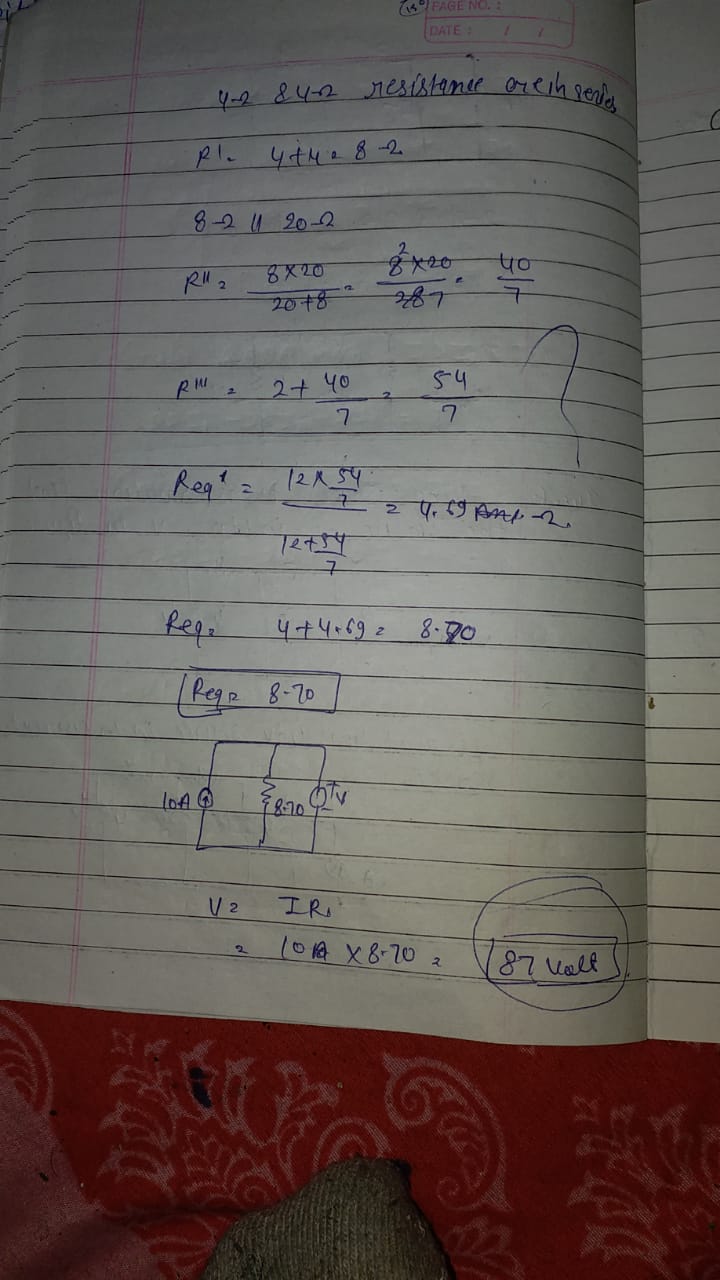 PAGE NO. :
DATE : / /
4Ω & 4Ω resistance are in series
R' = 4+4 = 8Ω
8Ω || 20Ω
R" = 8×20 / 20+8 = 8×20 / 28 7 = 40 / 7
2
R''' = 2 + 40/7 = 54/7
Req' = 12 × 54/7 / 12+54/7 = 4.69 Ω
Req = 4+4.69 = 8.70
Req = 8.70
10A 8.70 + V -
V = IR
= 10A × 8.70 = 87 Volt